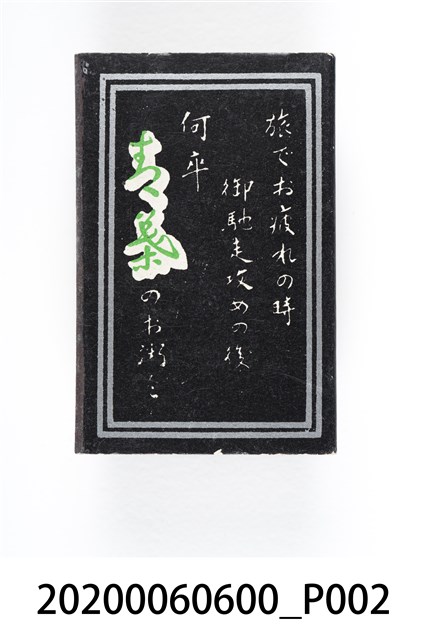 旅でお疲れの時
御馳走攻めの後
何卒
青葉のお街を
20200060600_P002